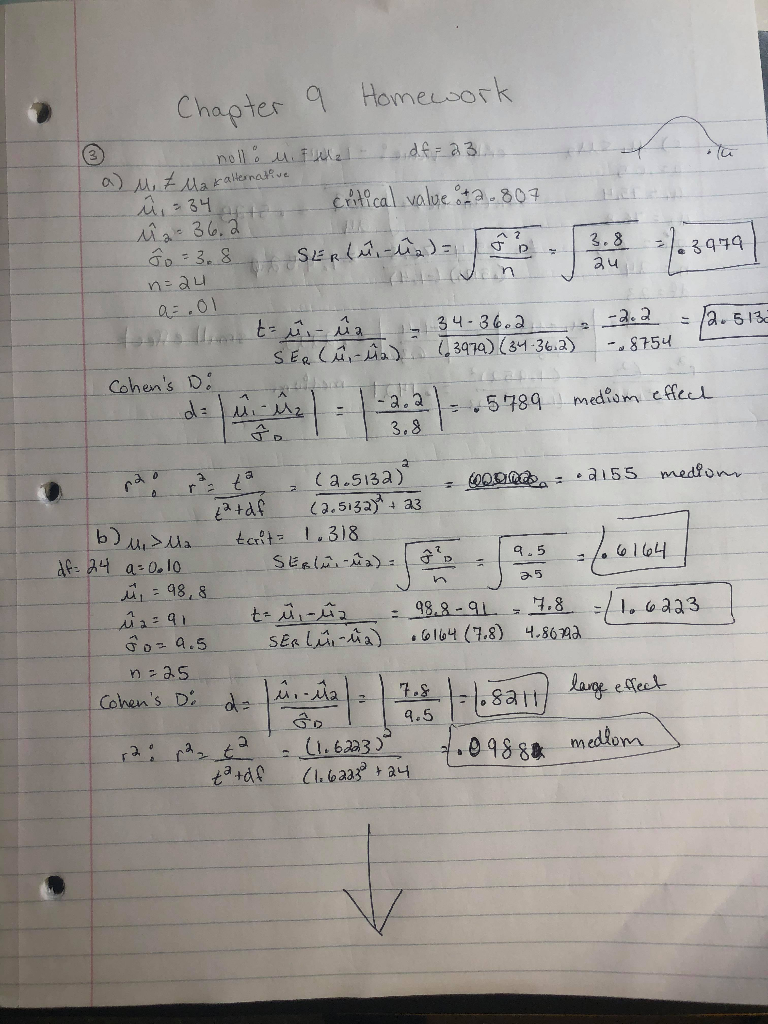 Chapter 9 Homework
③ null: μ₁ ≠ μ₂ df = 23
a) μ₁ ≠ μ₂ ← alternative
μ̂₁ = 34 critical value: ±2.807
μ̂₂ = 36.2
σ̂D = 3.8 SER(μ̂₁-μ̂₂) = √(σ̂²D / n) = √(3.8 / 24) = .3979
n = 24
a = .01
t = (μ̂₁ - μ̂₂) / SER(μ̂₁-μ̂₂) = (34-36.2) / (.3979)(34-36.2) = -2.2 / -.8754 = 2.5132
Cohen's D:
d = |(μ̂₁ - μ̂₂) / σ̂D| = |-2.2 / 3.8| = .5789 medium effect
r²: r² = t² / (t²+df) = (2.5132)² / ((2.5132)² + 23) = .2155 medium
b) μ₁ > μ₂ tcrit = 1.318
df = 24 a = 0.10 SER(μ̂₁-μ̂₂) = √(σ̂²D / n) = √(9.5 / 25) = .6164
μ̂₁ = 98.8
μ̂₂ = 91 t = (μ̂₁ - μ̂₂) / SER(μ̂₁-μ̂₂) = (98.8-91) / .6164(7.8) = 7.8 / 4.80792 = 1.6223
σ̂D = 9.5
n = 25
Cohen's D: d = |(μ̂₁ - μ̂₂) / σ̂D| = |7.8 / 9.5| = .8211 large effect
r²: r² = t² / (t²+df) = (1.6223)² / (1.6223² + 24 = .0988 medIom